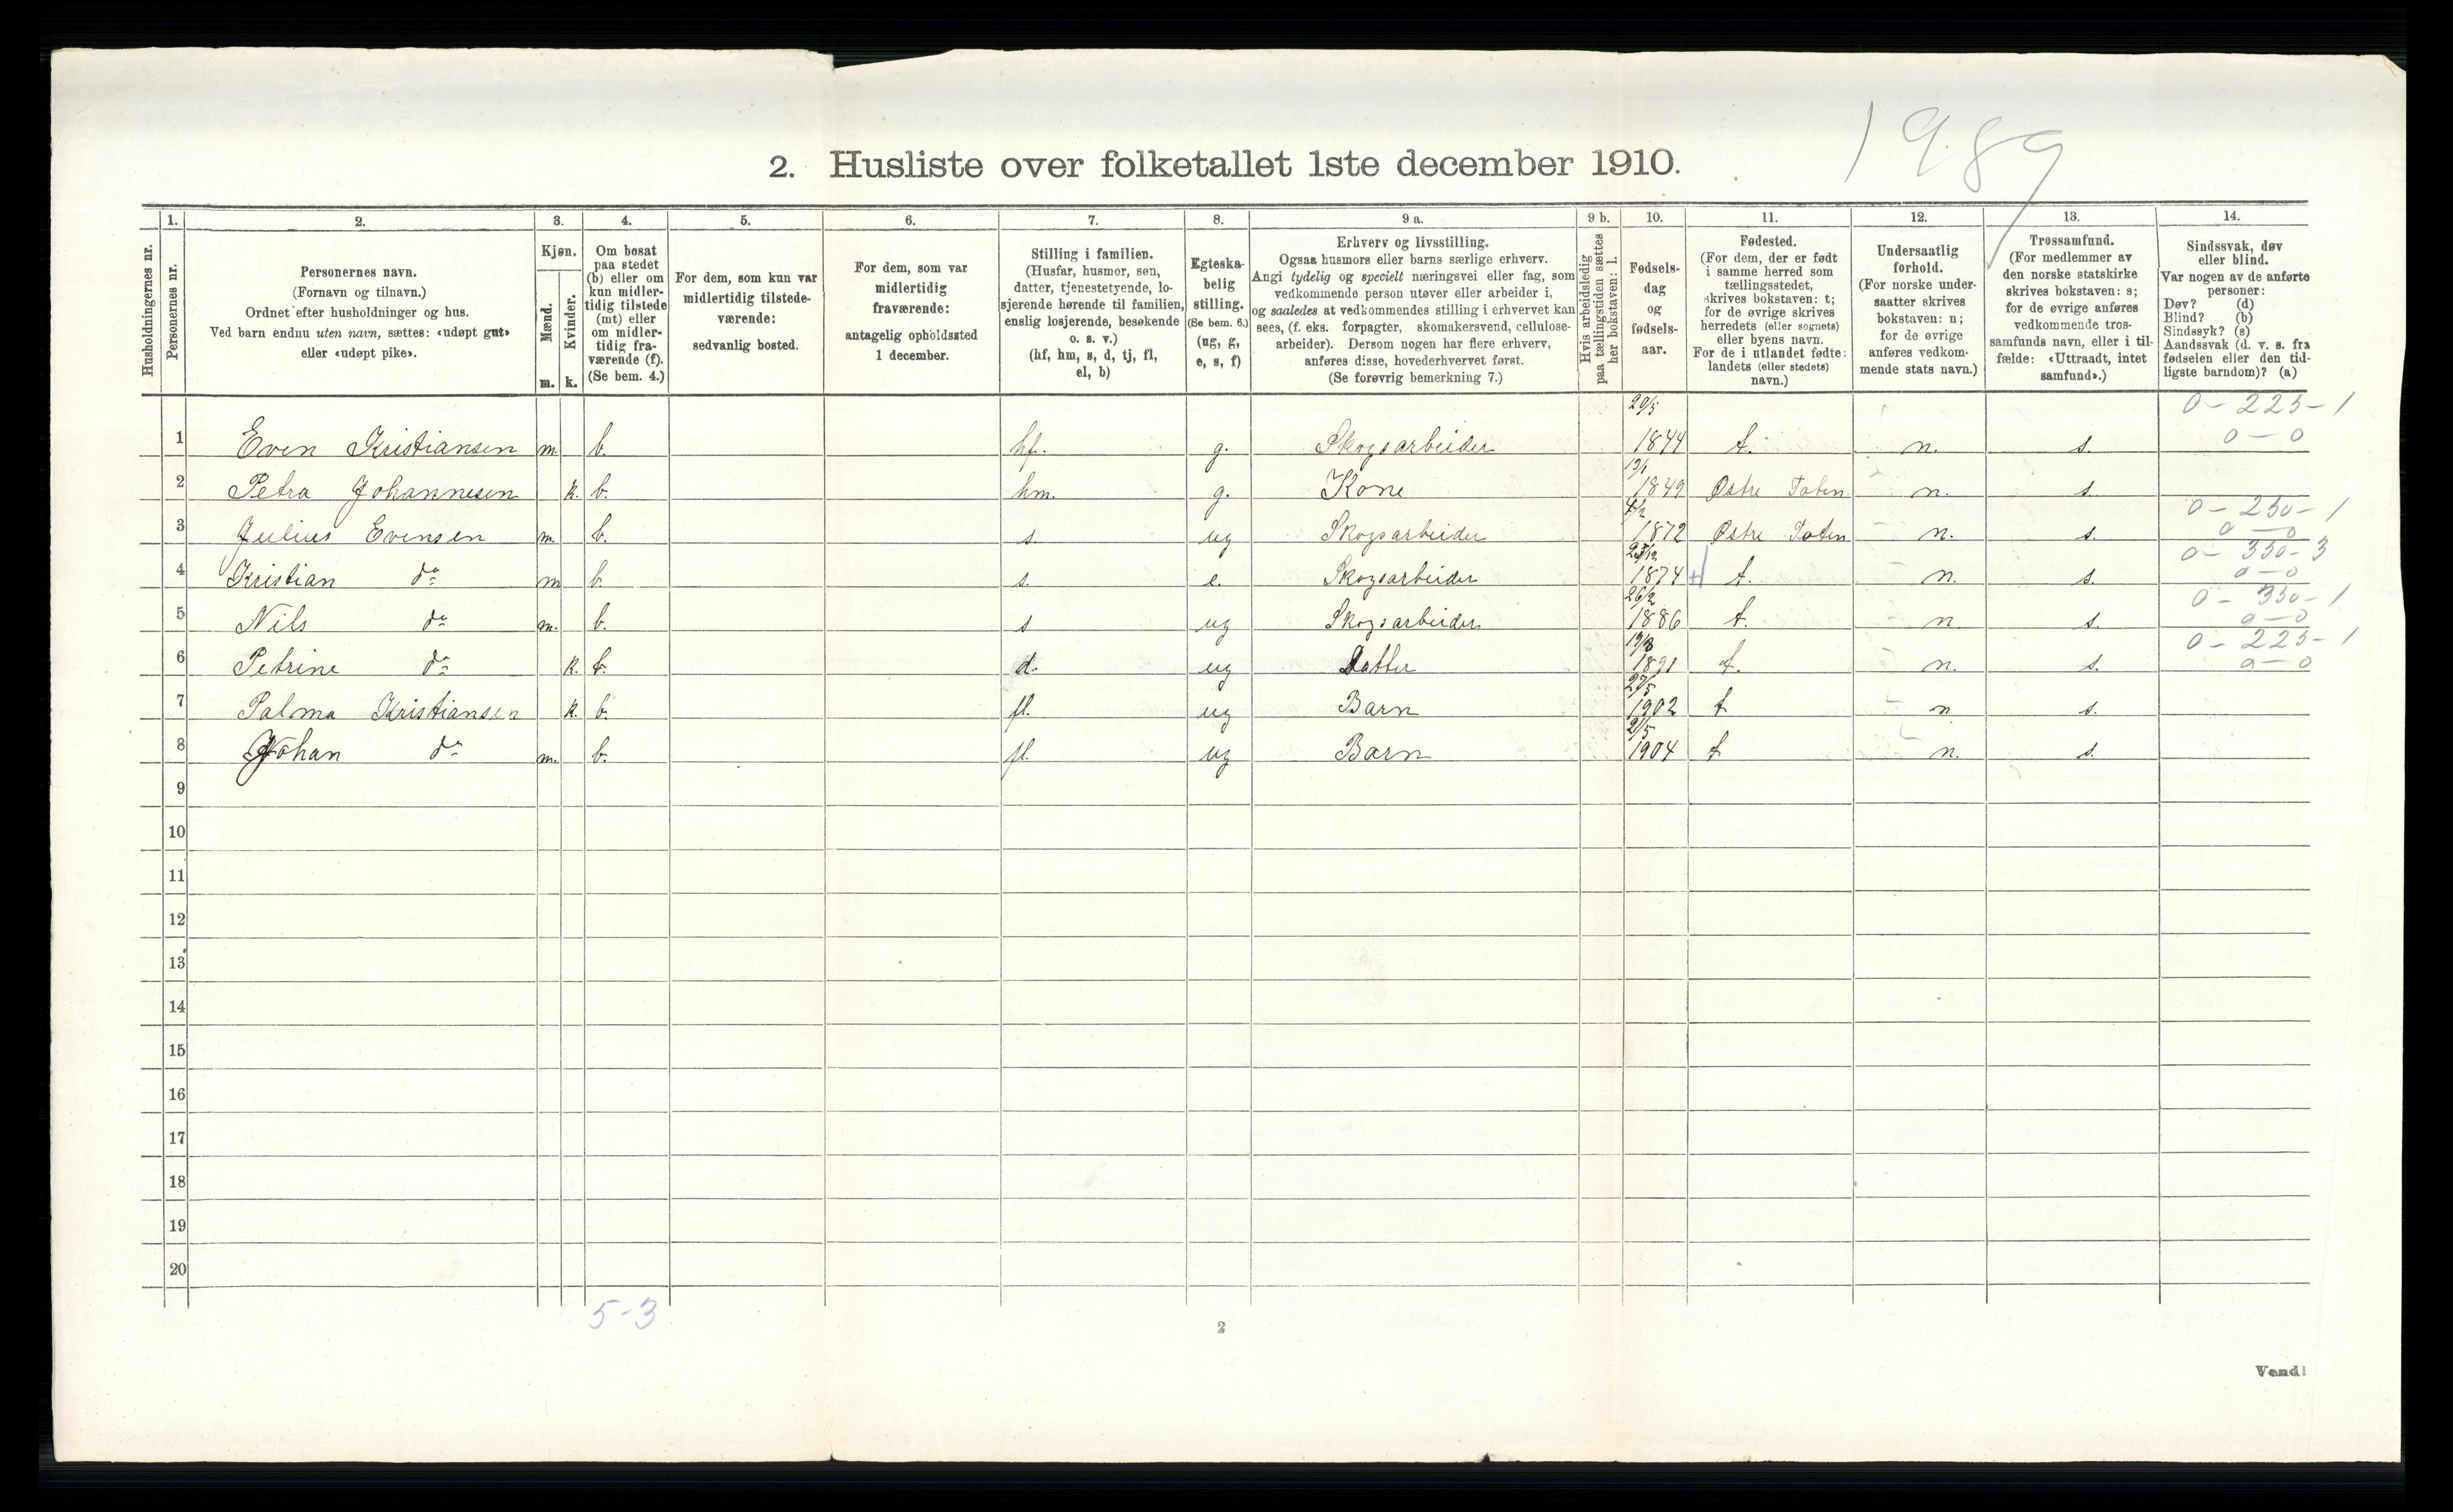 19.89
2. Husliste over folketallet 1ste december 1910.
Husholdningernes nr.
1.
Personernes nr.
2.
Personernes navn.
(Fornavn og tilnavn.)
Ordnet efter husholdninger og hus.
Ved barn endnu uten navn, sættes: «udøpt gut»
eller «udøpt pike».
3.
Kjøn.
Mænd.
m.
Kvinder.
k.
4.
Om bosat
paa stedet
(b) eller om
kun midler-
tidig tilstede
(mt) eller
om midler-
tidig fra-
værende (f).
(Se bem. 4.)
5.
For dem, som kun var
midlertidig tilstede-
værende:
sedvanlig bosted.
6.
For dem, som var
midlertidig
fraværende:
antagelig opholdssted
1 december.
7.
Stilling i familien.
(Husfar, husmor, søn,
datter, tjenestetyende, lo-
sjerende hørende til familien,
enslig losjerende, besøkende
o. s. v.)
(hf, hm, s, d, tj, fl,
el, b)
8.
Egteska-
belig
stilling.
(Se bem. 6.)
(ug, g,
e, s, f)
9 a.
Erhverv og livsstilling.
Ogsaa husmors eller barns særlige erhverv.
Angi tydelig og specielt næringsvei eller fag, som
vedkommende person utøver eller arbeider i,
og saaledes at vedkommendes stilling i erhvervet kan
sees, (f. eks. forpagter, skomakersvend, cellulose-
arbeider). Dersom nogen har flere erhverv,
anføres disse, hovederhvervet først.
(Se forøvrig bemerkning 7.)
9 b.
Hvis arbeidsledig
paa tællingstiden sættes
her bokstaven: l.
10.
Fødsels-
dag
og
fødsels-
aar.
11.
Fødested.
(For dem, der er født
i samme herred som
tællingsstedet,
skrives bokstaven: t;
for de øvrige skrives
herredets (eller sognets)
eller byens navn.
For de i utlandet fødte:
landets (eller stedets)
navn.)
12.
Undersaatlig
forhold.
(For norske under-
saatter skrives
bokstaven: n;
for de øvrige
anføres vedkom-
mende stats navn.)
13.
Trossamfund.
(For medlemmer av
den norske statskirke
skrives bokstaven: s;
for de øvrige anføres
vedkommende tros-
samfunds navn, eller i til-
fælde: «Uttraadt, intet
samfund».)
14.
Sindssvak, døv
eller blind.
Var nogen av de anførte
personer:
Døv? (d)
Blind? (b)
Sindssyk? (s)
Aandssvak (d. v. s. fra
fødselen eller den tid-
ligste barndom)? (a)
29/5 0 - 225 - 1
1 Even Kristiansen m. b. hf. g. Skogsarbeider 1844 t. n. s. 0 - 0
2 Petra Johannesen k. b. hm. g. Kone 1849 Østre Toten n. s.
4/2 0 - 250 - 1
3 Julius Evensen m. b. s. ug Skogsarbeider 1872 Østre Toten n. s. 0 - 0
0 - 350 - 3
4 Kristian do m b. s. e. Skogsarbeider 1874 t. n. s. 0 - 0
26/2 0 - 350 - 1
5 Nils do m. b. s ug Skogsarbeider 1886 t. n. s. 0 - 0
0 - 225 - 1
6 Petrine do k. b. d. ug Datter 1891 t. n. s. 0 - 0
27/5
7 Palma Kristiansen k. b. fl. ug Barn 1902 t n s.
2/5
8 Johan do m. b. fl. ug Barn 1904 t n. s.
9
10
11
12
13
14
15
16
17
18
19
20
5-3
2
Vend!